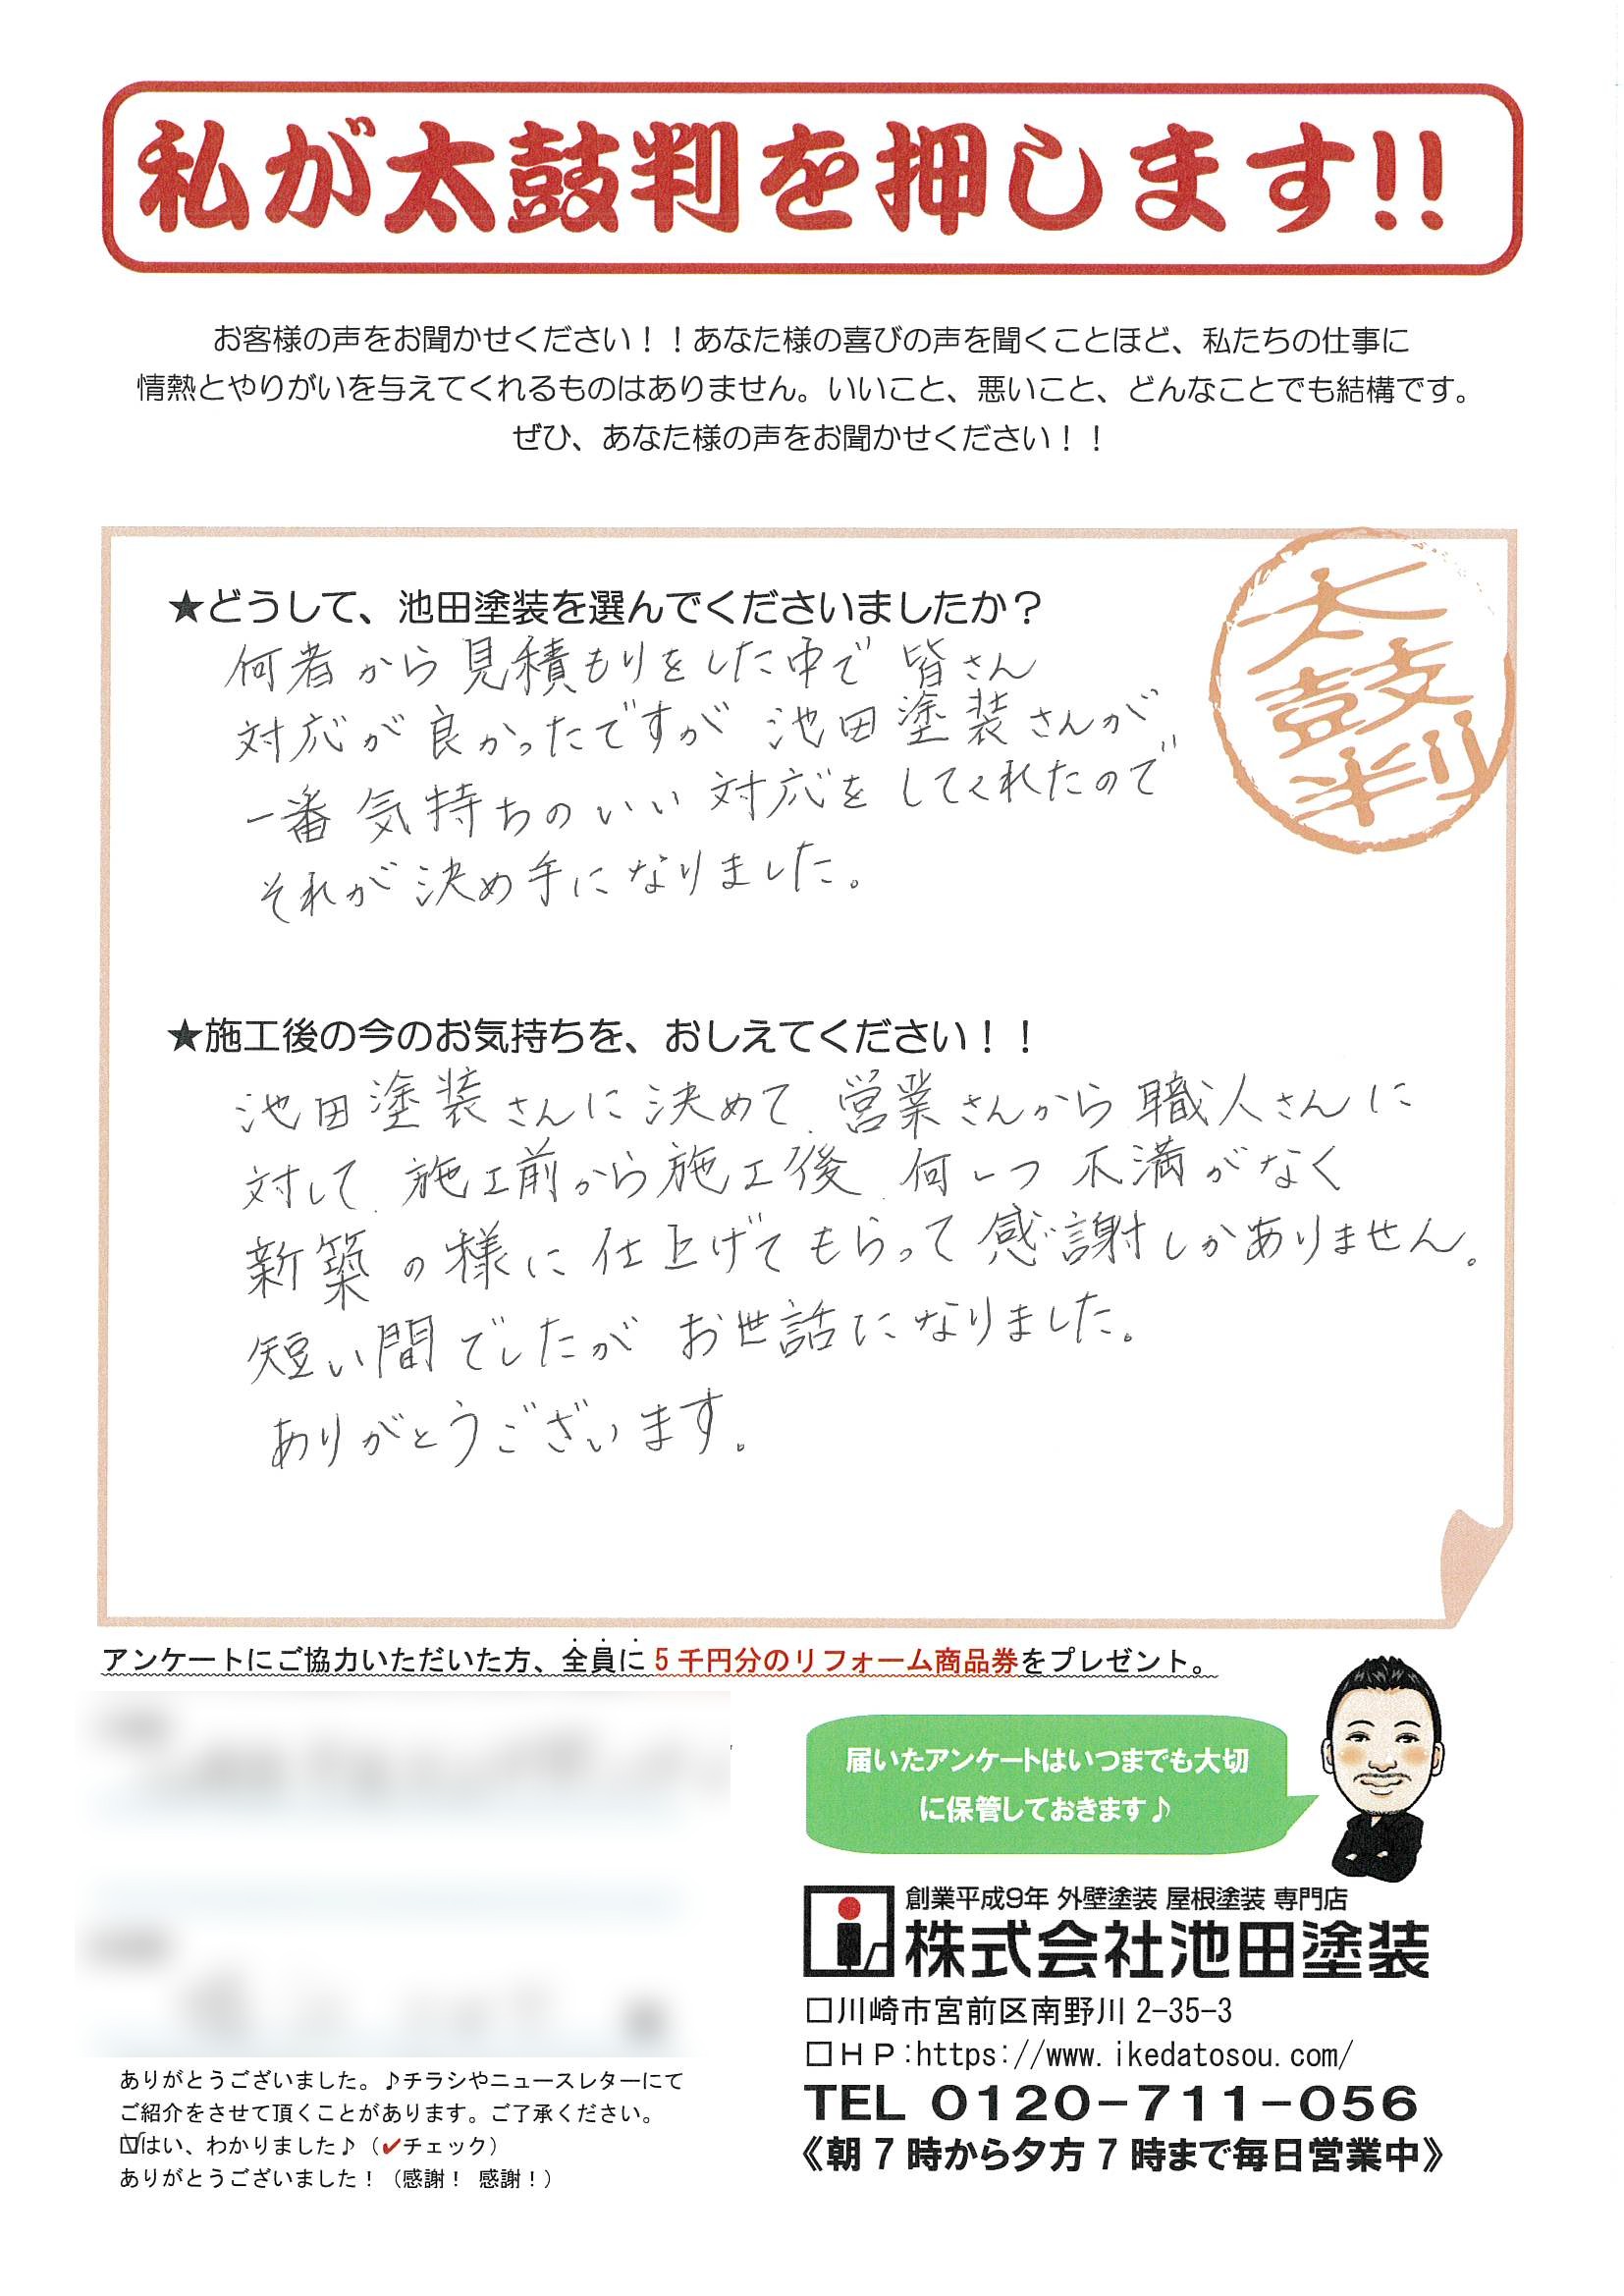 私が太鼓判を押します!!
お客様の声をお聞かせください！！あなた様の喜びの声を聞くことほど、私たちの仕事に
情熱とやりがいを与えてくれるものはありません。いいこと、悪いこと、どんなことでも結構です。
ぜひ、あなた様の声をお聞かせください！！
太鼓判
★どうして、池田塗装を選んでくださいましたか？
何者から見積もりをした中で 皆さん
対応が良かったですが 池田塗装さんが
一番気持ちのいい対応をしてくれたので
それが決め手になりました。
★施工後の今のお気持ちを、おしえてください！！
池田塗装さんに決めて、営業さんから職人さんに
対して、施工前から施工後、何一つ不満がなく
新築の様に仕上げてもらって感謝しかありません。
短い間でしたがお世話になりました。
ありがとうございます。
アンケートにご協力いただいた方、全員に5千円分のリフォーム商品券をプレゼント。
届いたアンケートはいつまでも大切
に保管しておきます♪
創業平成9年 外壁塗装 屋根塗装 専門店
株式会社池田塗装
□川崎市宮前区南野川2-35-3
□ＨＰ:https://www.ikedatosou.com/
TEL 0120-711-056
《朝7時から夕方7時まで毎日営業中》
ありがとうございました。♪チラシやニュースレターにて
ご紹介をさせて頂くことがあります。ご了承ください。
☑はい、わかりました♪（✔チェック）
ありがとうございました！（感謝！ 感謝！）